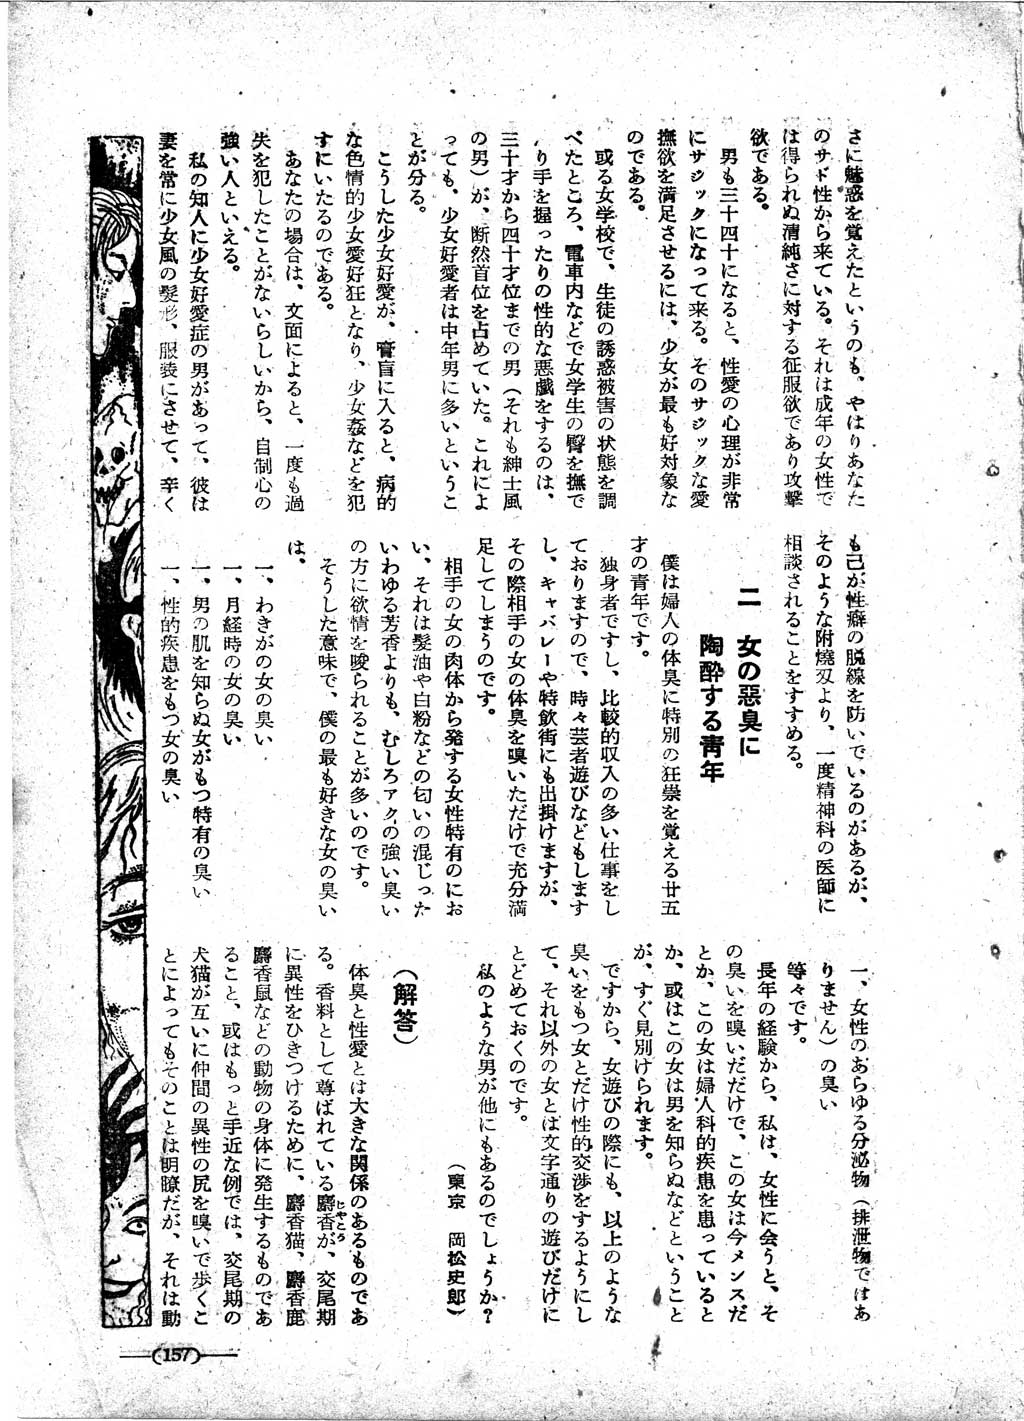 さに魅惑を覚えたというのも、やはりあなた
のサド性から来ている。それは成年の女性で
は得られぬ清純さに対する征服欲であり攻撃
欲である。
男も三十四十になると、性愛の心理が非常
にサジックになって来る。そのサジックな愛
撫欲を満足させるには、少女が最も好対象な
のである。
或る女学校で、生徒の誘惑被害の状態を調
べたところ、電車内などで女学生の臀を撫で
り手を握ったりの性的な悪戯をするのは、
三十才から四十才位までの男（それも紳士風
の男）が、断然首位を占めていた。これによ
っても、少女好愛者は中年男に多いというこ
とが分る。
こうした少女好愛が、膏盲に入ると、病的
な色情的少女愛好狂となり、少女姦などを犯
すにいたるのである。
あなたの場合は、文面によると、一度も過
失を犯したことがないらしいから、自制心の
強い人といえる。
私の知人に少女好愛症の男があって、彼は
妻を常に少女風の髪形、服装にさせて、辛く
も己が性癖の脱線を防いでいるのがあるが、
そのような附燒刄より、一度精神科の医師に
相談されることをすすめる。
二　女の惡臭に
陶酔する靑年
僕は婦人の体臭に特別の狂崇を覚える廿五
才の青年です。
独身者ですし、比較的収入の多い仕事をし
ておりますので、時々芸者遊びなどもします
し、キャバレーや特飲街にも出掛けますが、
その際相手の女の体臭を嗅いただけで充分満
足してしまうのです。
相手の女の肉体から発する女性特有のにお
い、それは髪油や白粉などの匂いの混じった
いわゆる芳香よりも、むしろアクの強い臭い
の方に欲情を唆られることが多いのです。
そうした意味で、僕の最も好きな女の臭い
は、
一、わきがの女の臭い
一、月経時の女の臭い
一、男の肌を知らぬ女がもつ特有の臭い
一、性的疾患をもつ女の臭い
一、女性のあらゆる分泌物（排泄物ではあ
りません）の臭い
等々です。
長年の経験から、私は、女性に会うと、そ
の臭いを嗅いだだけで、この女は今メンスだ
とか、この女は婦人科的疾患を患っていると
か、或はこの女は男を知らぬなどということ
が、すぐ見別けられます。
ですから、女遊びの際にも、以上のような
臭いをもつ女とだけ性的交渉をするようにし
て、それ以外の女とは文字通りの遊びだけに
とどめておくのです。
私のような男が他にもあるのでしょうか？
（東京　岡松史郎）
（解答）
体臭と性愛とは大きな関係のあるものであ
る。香料として尊ばれている麝香が、交尾期
じやこう
に異性をひきつけるために、麝香猫、麝香鹿
麝香鼠などの動物の身体に発生するものであ
ること、或はもっと手近な例では、交尾期の
犬猫が互いに仲間の異性の尻を嗅いで歩くこ
とによってもそのことは明瞭だが、それは動
(157)